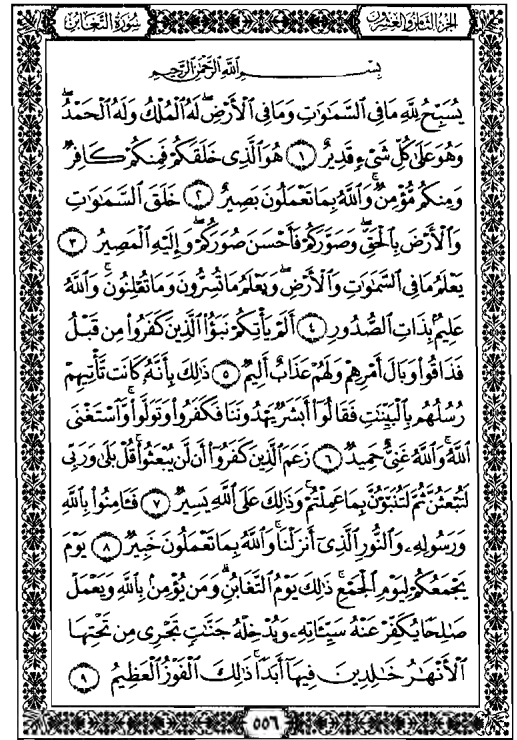 الجزء الثامن والعشرون
سورة التغابن
بِسْمِ اللَّهِ الرَّحْمَٰنِ الرَّحِيمِ
يُسَبِّحُ لِلَّهِ مَا فِي السَّمَٰوَٰتِ وَمَا فِي الْأَرْضِ ۖ لَهُ الْمُلْكُ وَلَهُ الْحَمْدُ ۖ
وَهُوَ عَلَىٰ كُلِّ شَىْءٍ قَدِيرٌ ١ هُوَ الَّذِي خَلَقَكُمْ فَمِنكُمْ كَافِرٌ
وَمِنكُم مُّؤْمِنٌ ۚ وَاللَّهُ بِمَا تَعْمَلُونَ بَصِيرٌ ٢ خَلَقَ السَّمَٰوَٰتِ
وَالْأَرْضَ بِالْحَقِّ وَصَوَّرَكُمْ فَأَحْسَنَ صُوَرَكُمْ ۖ وَإِلَيْهِ الْمَصِيرُ ٣
يَعْلَمُ مَا فِي السَّمَٰوَٰتِ وَالْأَرْضِ وَيَعْلَمُ مَا تُسِرُّونَ وَمَا تُعْلِنُونَ ۚ وَاللَّهُ
عَلِيمٌ بِذَاتِ الصُّدُورِ ٤ أَلَمْ يَأْتِكُمْ نَبَؤُا الَّذِينَ كَفَرُوا مِن قَبْلُ
فَذَاقُوا وَبَالَ أَمْرِهِمْ وَلَهُمْ عَذَابٌ أَلِيمٌ ٥ ذَٰلِكَ بِأَنَّهُ كَانَت تَّأْتِيهِمْ
رُسُلُهُم بِالْبَيِّنَٰتِ فَقَالُوا أَبَشَرٌ يَهْدُونَنَا فَكَفَرُوا وَتَوَلَّوا ۚ وَّاسْتَغْنَى
اللَّهُ ۚ وَاللَّهُ غَنِيٌّ حَمِيدٌ ٦ زَعَمَ الَّذِينَ كَفَرُوا أَن لَّن يُبْعَثُوا ۚ قُلْ بَلَىٰ وَرَبِّي
لَتُبْعَثُنَّ ثُمَّ لَتُنَبَّؤُنَّ بِمَا عَمِلْتُمْ ۚ وَذَٰلِكَ عَلَى اللَّهِ يَسِيرٌ ٧ فَـَٔامِنُوا بِاللَّهِ
وَرَسُولِهِ وَالنُّورِ الَّذِي أَنزَلْنَا ۚ وَاللَّهُ بِمَا تَعْمَلُونَ خَبِيرٌ ٨ يَوْمَ
يَجْمَعُكُمْ لِيَوْمِ الْجَمْعِ ۖ ذَٰلِكَ يَوْمُ التَّغَابُنِ ۗ وَمَن يُؤْمِنۢ بِاللَّهِ وَيَعْمَلْ
صَٰلِحًا يُكَفِّرْ عَنْهُ سَيِّـَٔاتِهِ وَيُدْخِلْهُ جَنَّٰتٍ تَجْرِي مِن تَحْتِهَا
الْأَنْهَٰرُ خَٰلِدِينَ فِيهَا أَبَدًا ۚ ذَٰلِكَ الْفَوْزُ الْعَظِيمُ ٩
٥٥٦